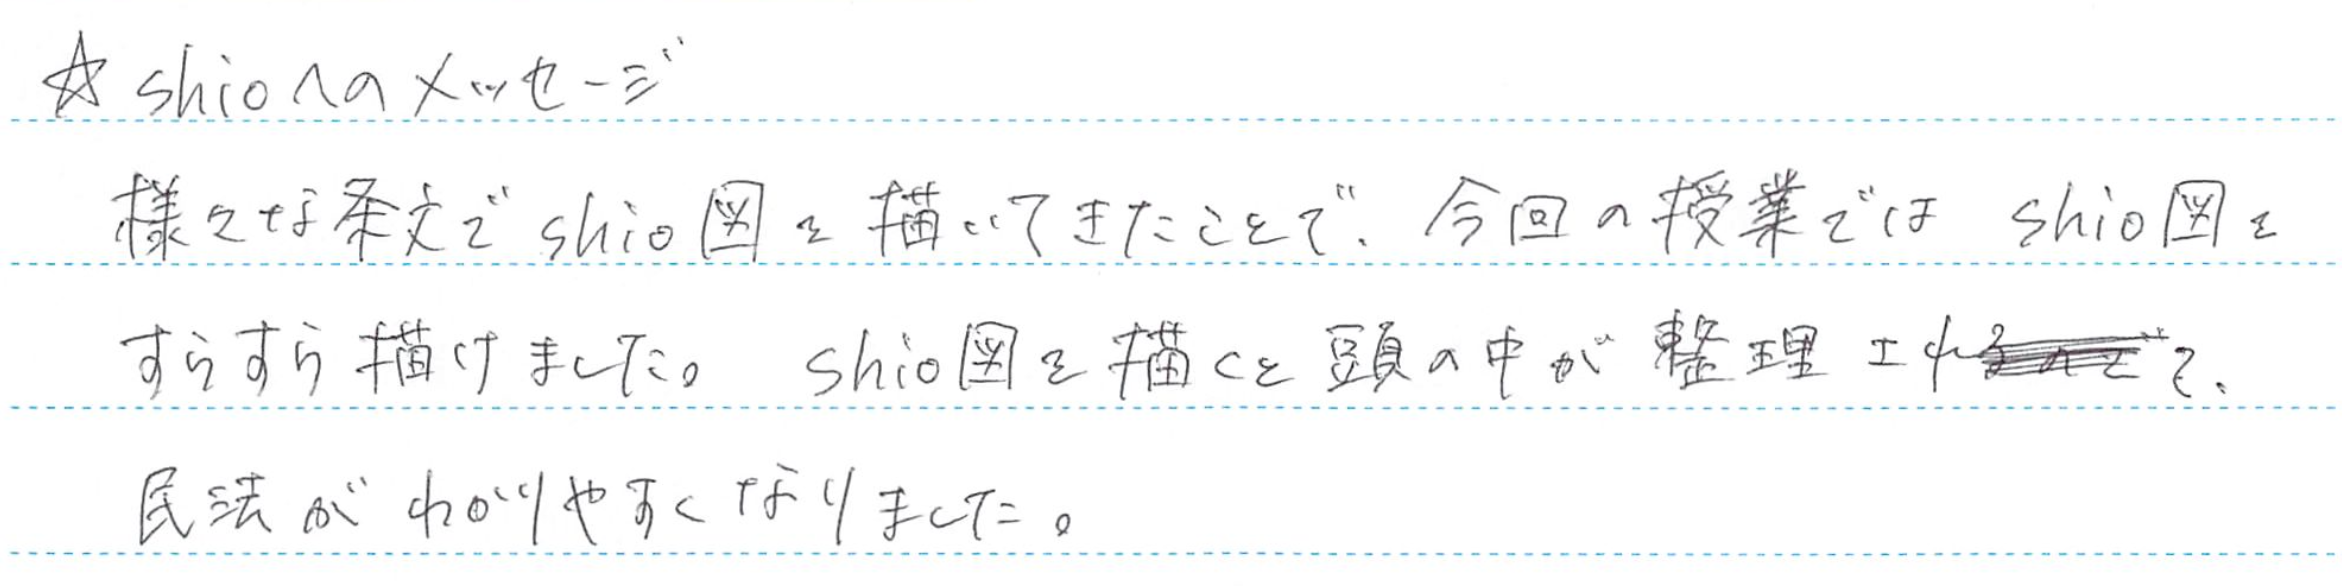 ☆shioへのメッセージ
様々な条文でshio図を描いてきたことで、今回の授業ではshio図を
すらすら描けました。shio図を描くと頭の中が整理されて、
民法がわかりやすくなりました。